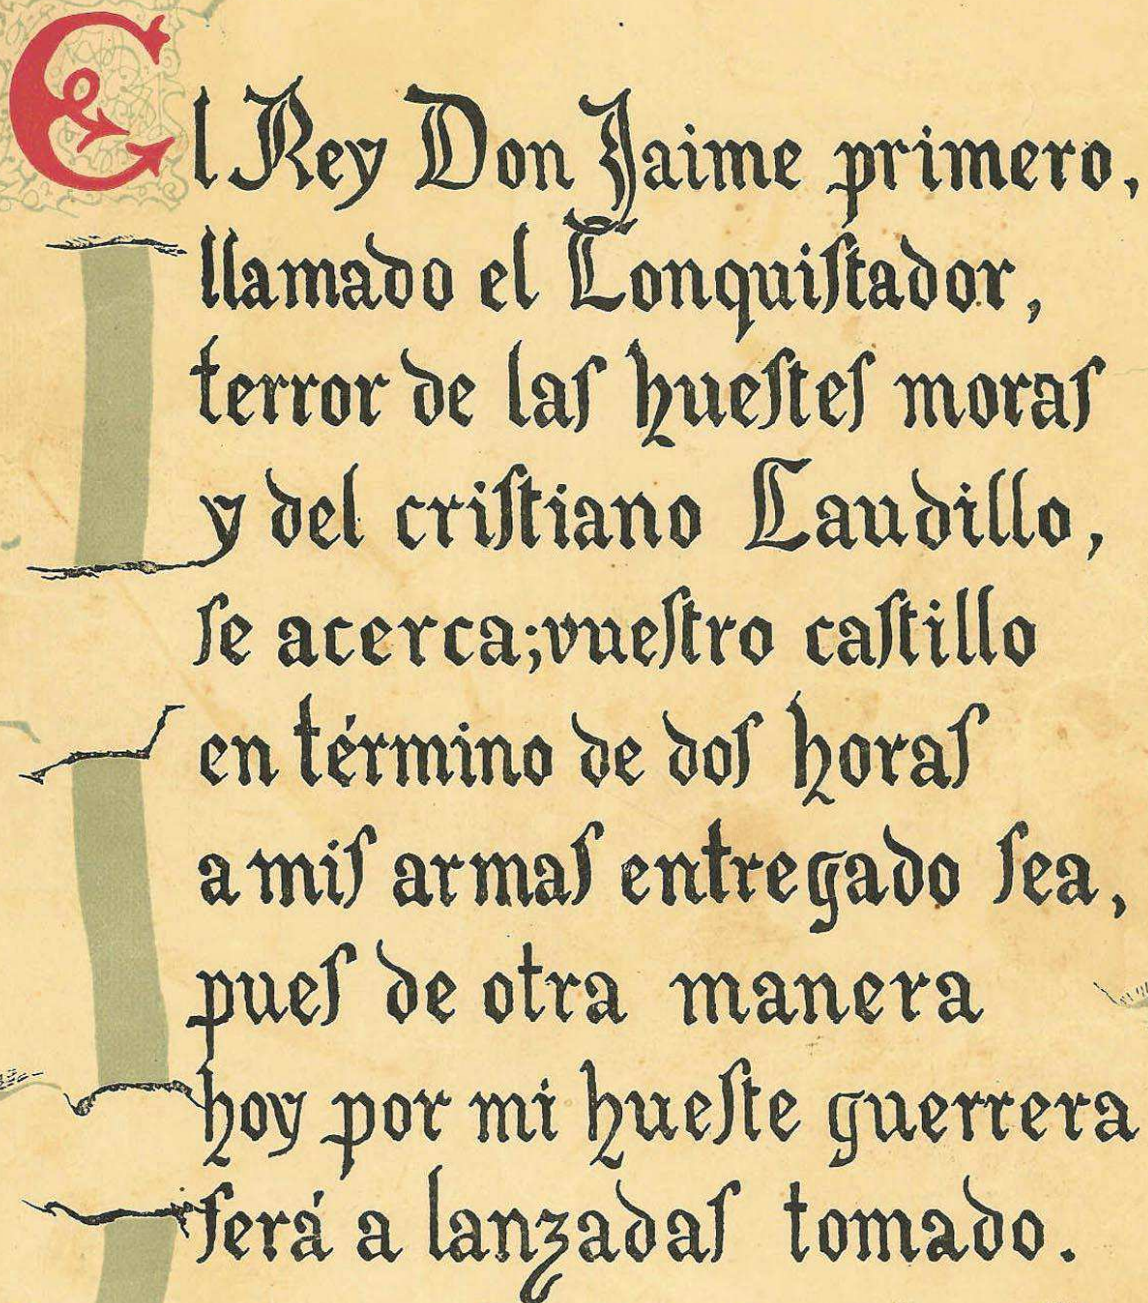 El Rey Don Jaime primero,
llamado el Conquiſtador,
terror de laſ hueſteſ moraſ
y del criſtiano Caudillo,
ſe acerca;vueſtro caſtillo
en término de doſ horaſ
a miſ armaſ entregado ſea,
pueſ de otra manera
hoy por mi hueſte guerrera
ſerá a lanzadaſ tomado.